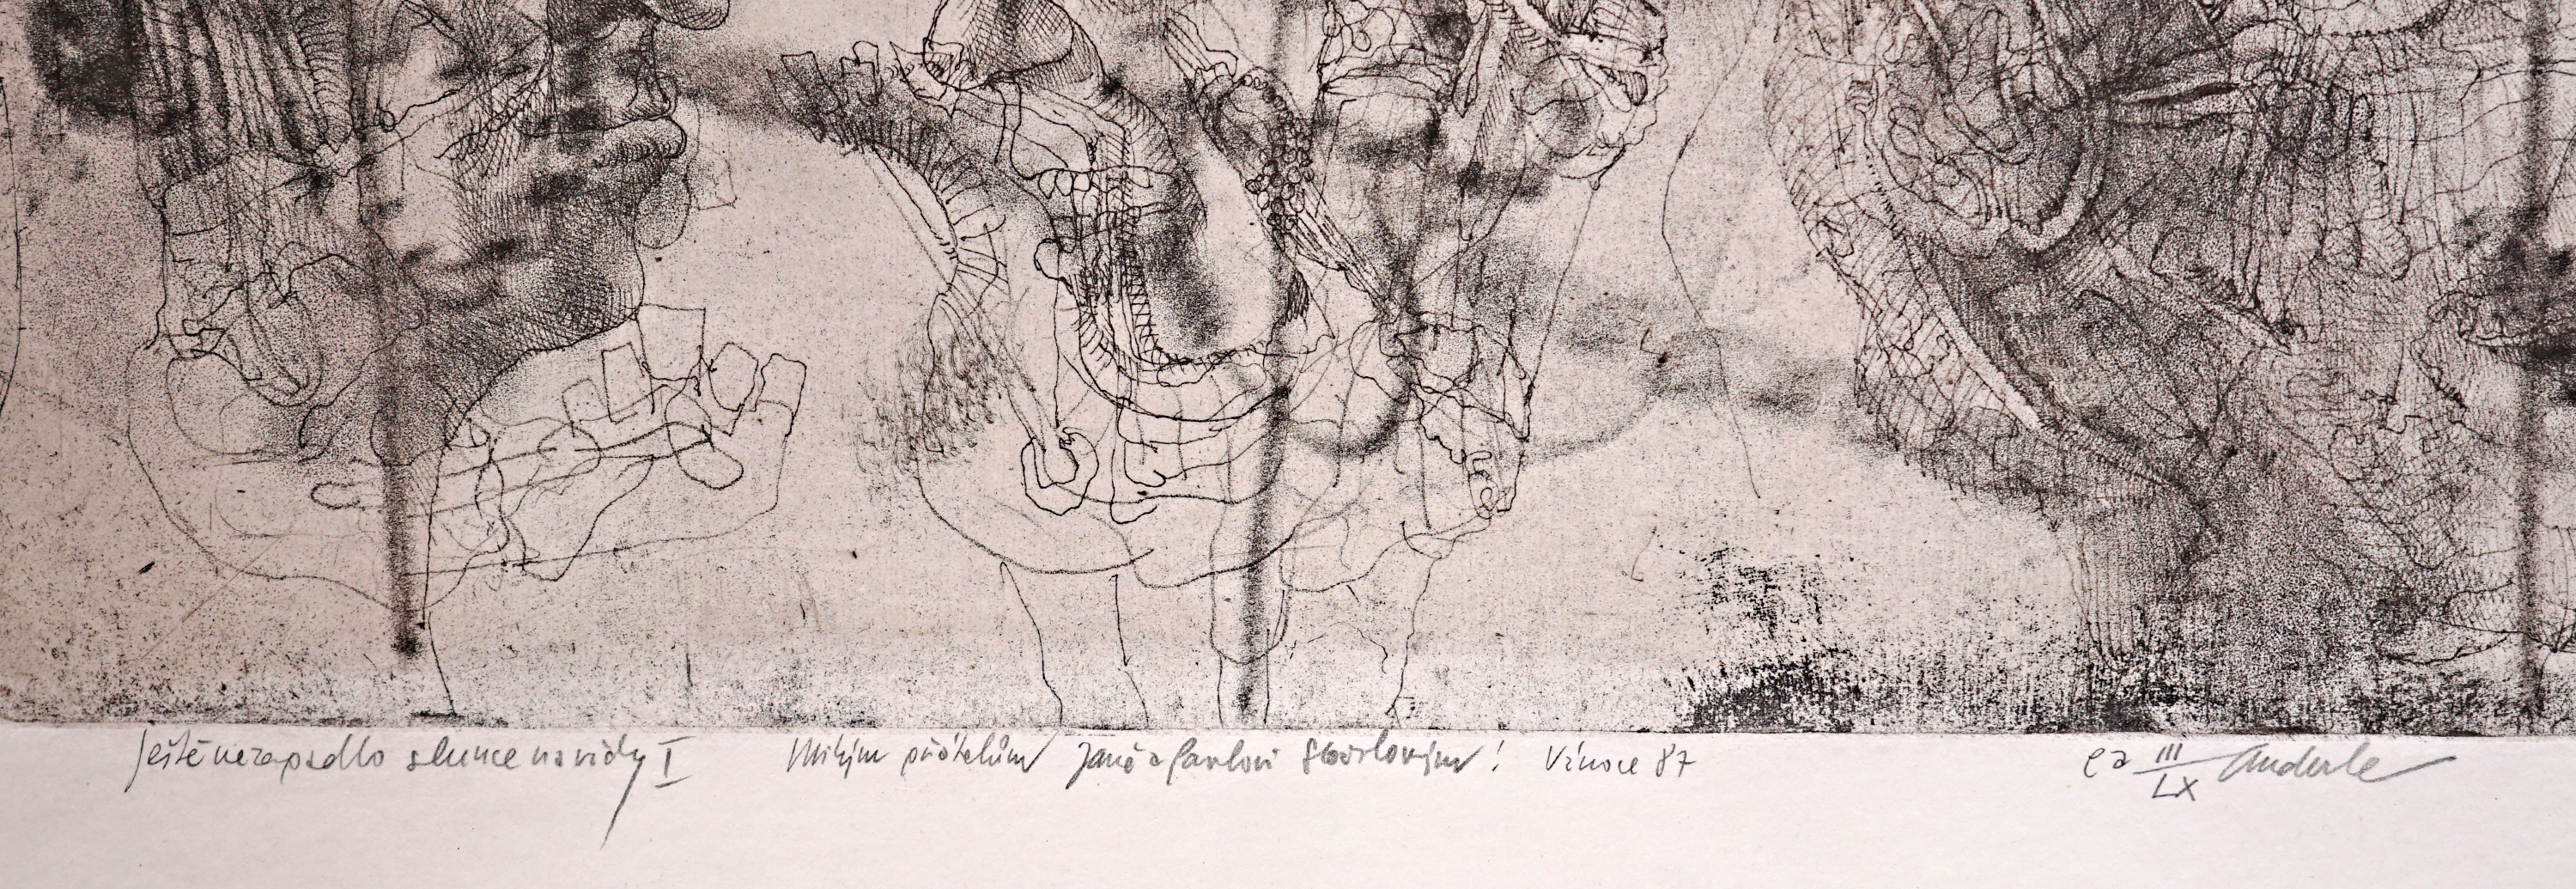 Ještě nezapadlo slunce navždy I Milým přátelům Janě a Pavlovi ! Vánoce 87 ea III/LX Anderle